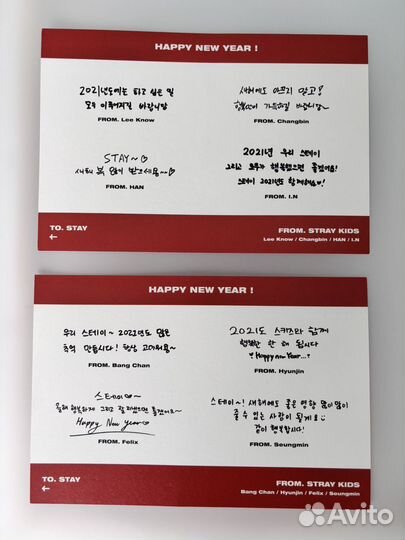 HAPPY NEW YEAR !
2021년도에는 하고 싶은 일
모두 이루어지길 바랍니다
FROM. Lee Know
새해에도 아프지 말고!
행복만 가득하길 바랍니다~
FROM. Changbin
STAY~♡
새해 복 많이 받으세용~♡
FROM. HAN
2021년 우리 스테이
그리고 모두가 행복했으면 좋겠어요!
스테이 2021년도 함께해요♡!
FROM. I.N
TO. STAY
←
FROM. STRAY KIDS
Lee Know / Changbin / HAN / I.N
HAPPY NEW YEAR !
우리 스테이~ 2021년도 많은
추억 만듭시다! 항상 고마워용~
FROM. Bang Chan
2021도 스키즈와 함께
행복한 한 해 됩시다
♡Happy new Year...♡
FROM. Hyunjin
스테이♡~
올해 행복하게 그리고 잘 지냈으면 좋겠어요~
Happy New year♡
FROM. Felix
스테이~! 새해에도 좋은 영향 많이많이
줄 수 있는 사람이 될게요
같이 행복합시다!
FROM. Seungmin
TO. STAY
←
FROM. STRAY KIDS
Bang Chan / Hyunjin / Felix / Seungmin
Avito